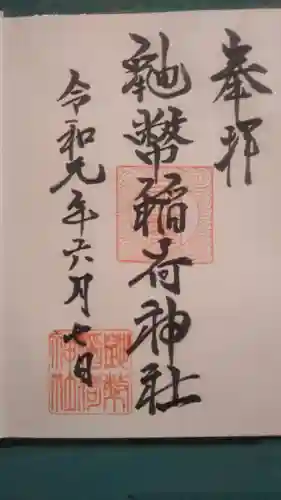 奉拝
幣稲荷神社
令和元年六月七日